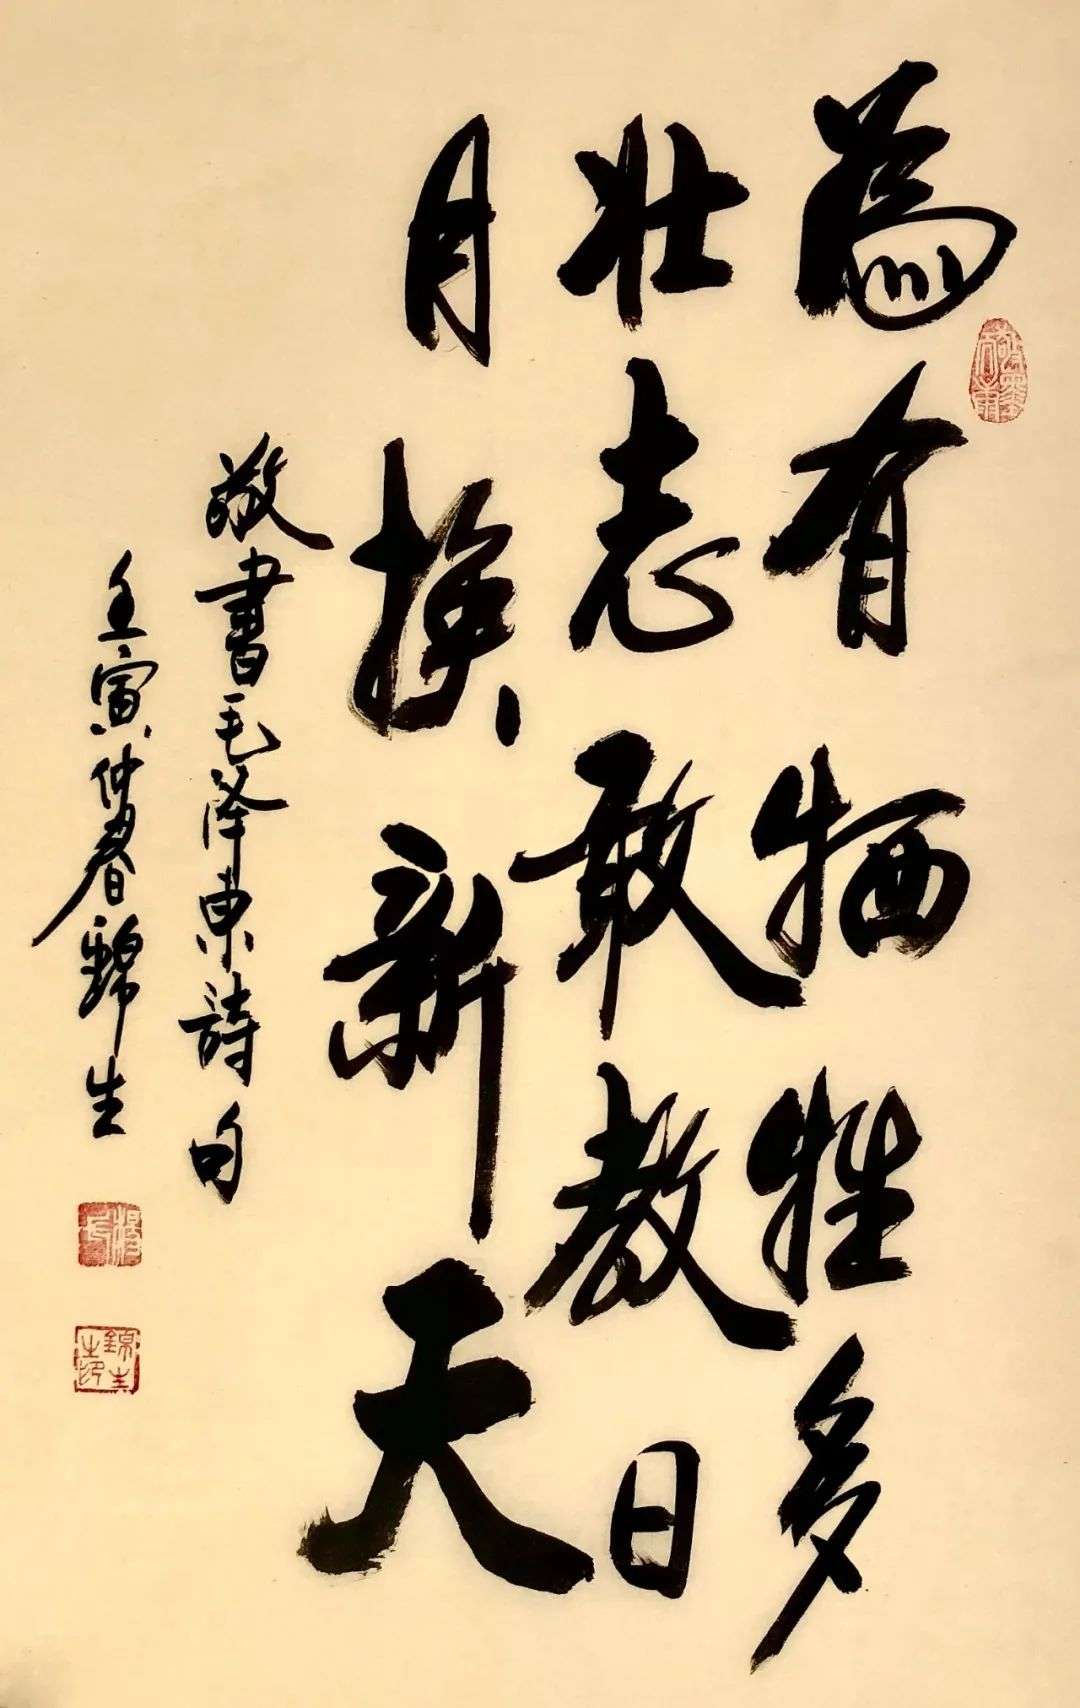 為有犧牲多
壯志敢教日
月換新天
敬書毛泽東詩句
壬寅仲春錦生
錦生之印